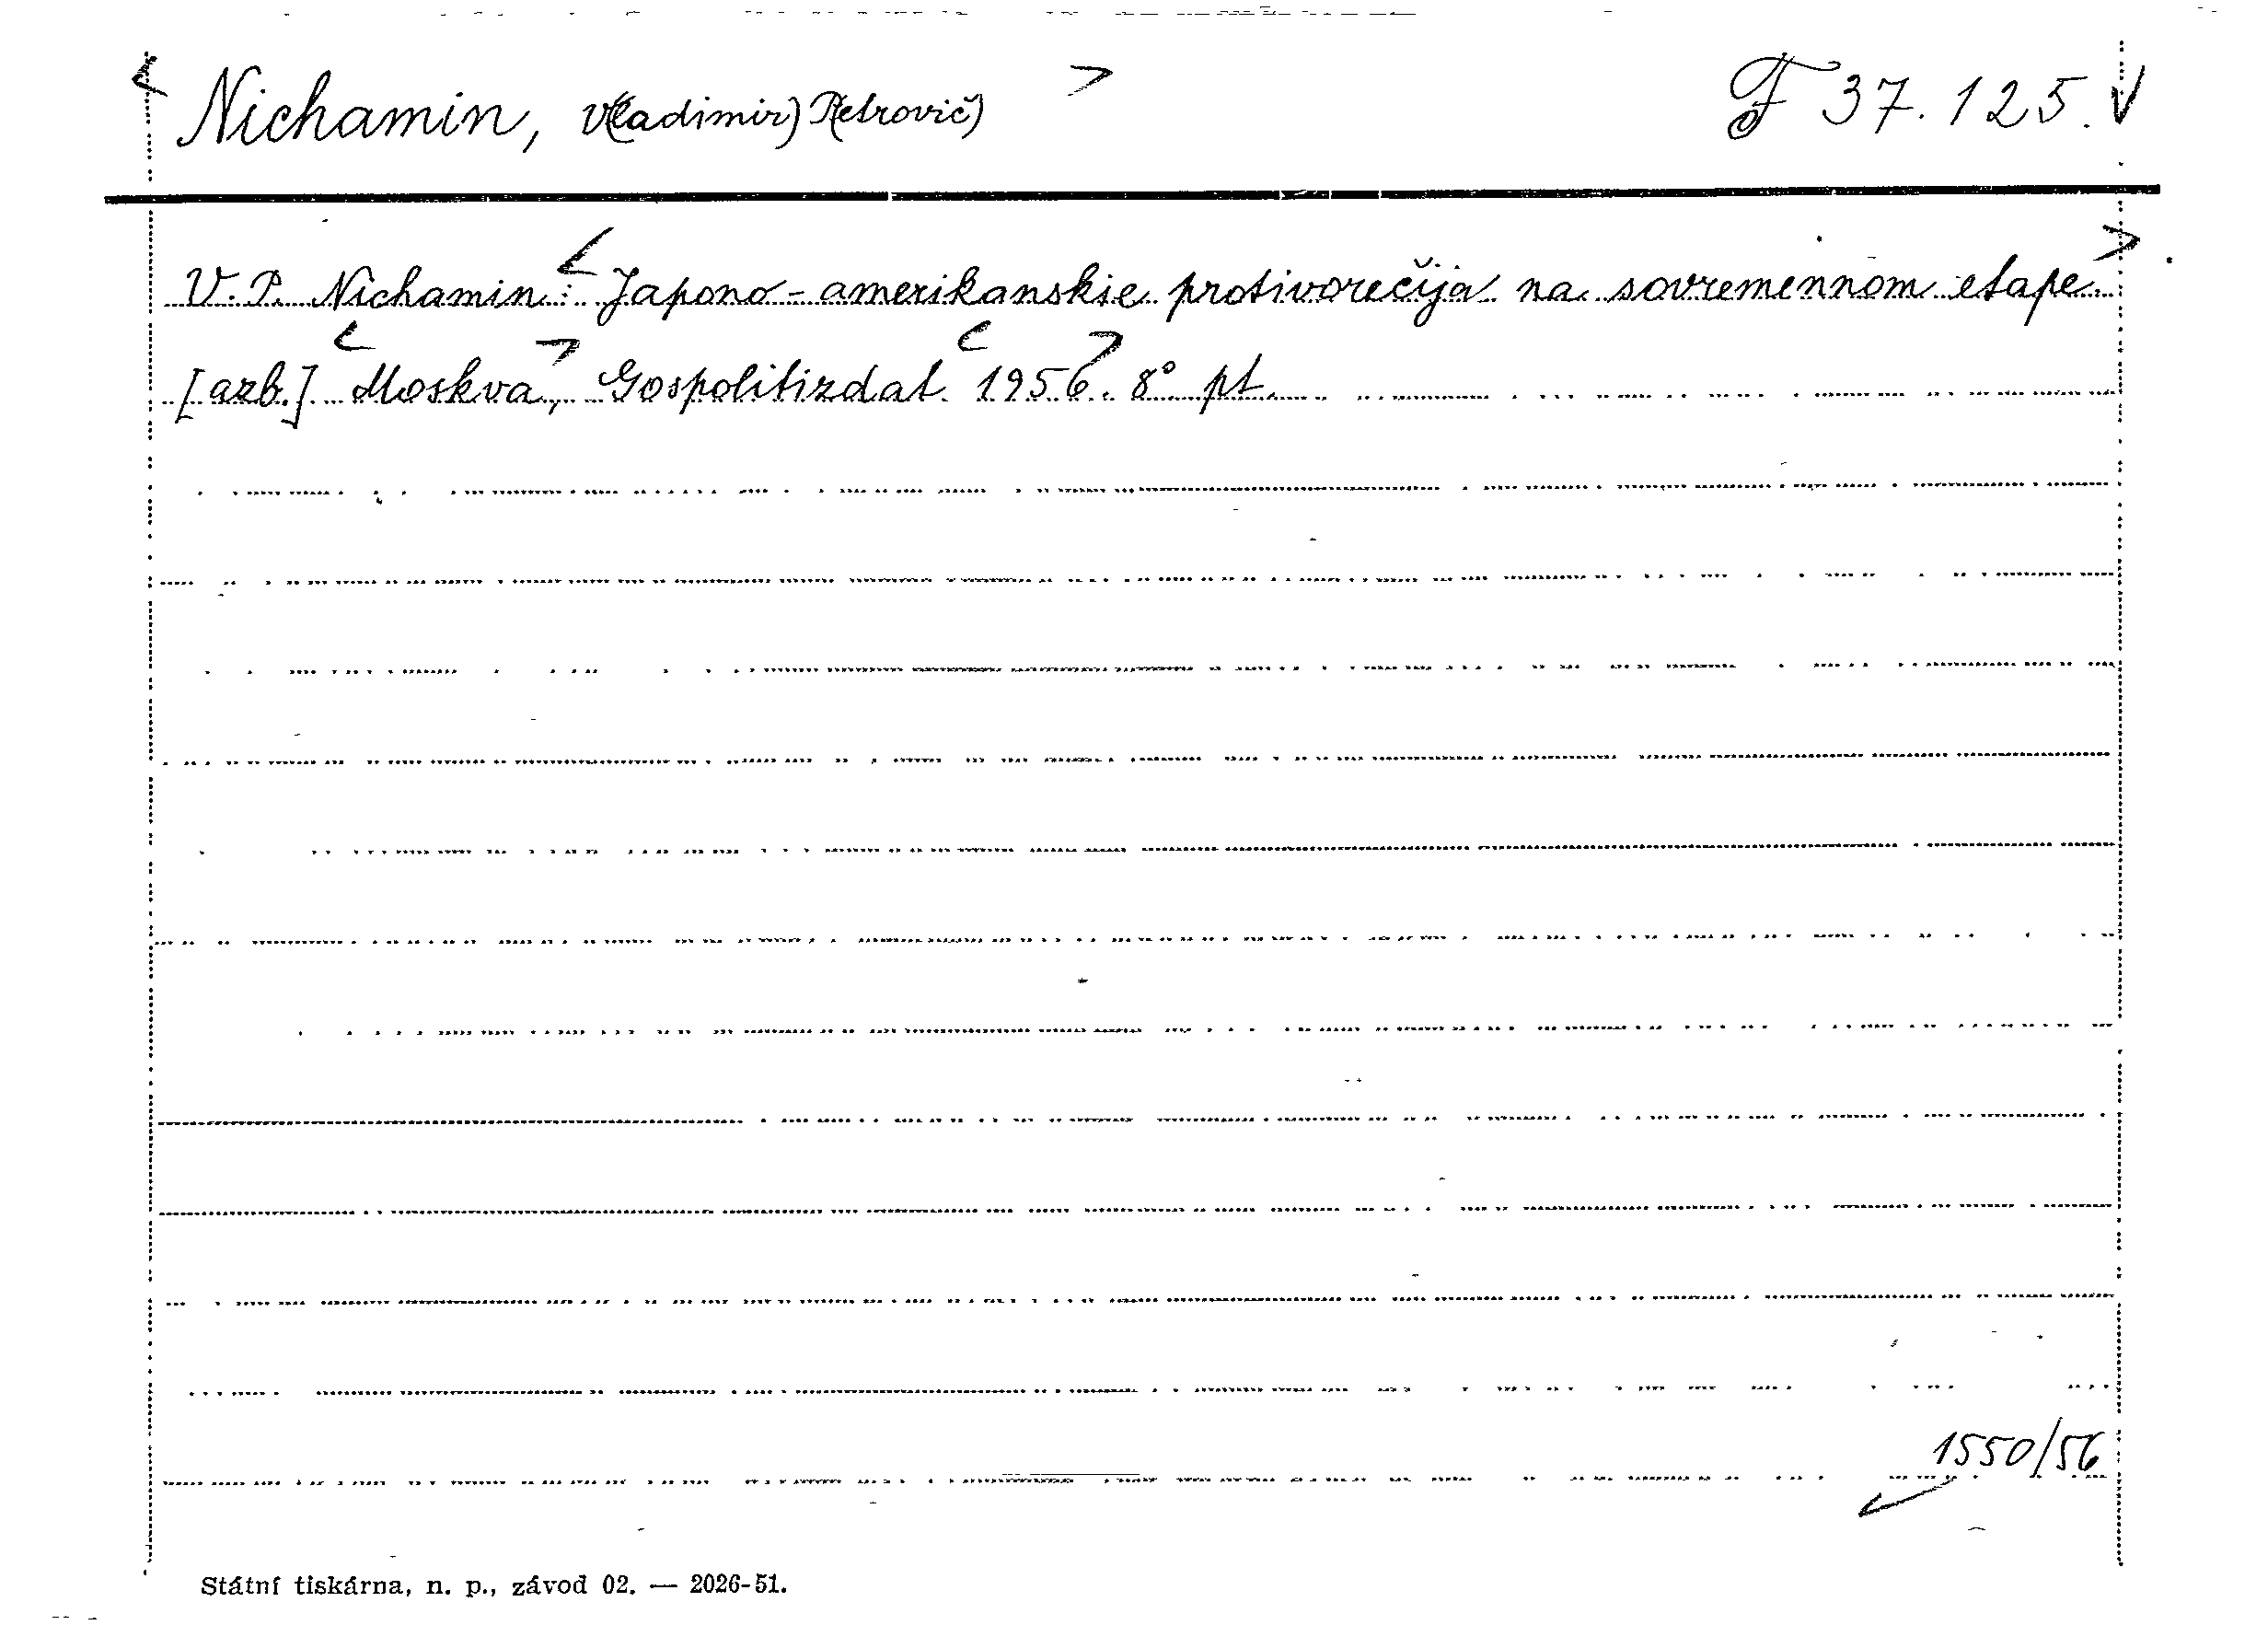 < Nichamin, V(ladimir) P(etrovič) > F 37.125. √
V. P. Nichamin: < Japono-amerikanskie protivorečija na sovremennom etape. >
[azb.] < Moskva, > Gospolitizdat < 1956. > 8° pt.
1550/56
Státní tiskárna, n. p., závod 02. — 2026-51.